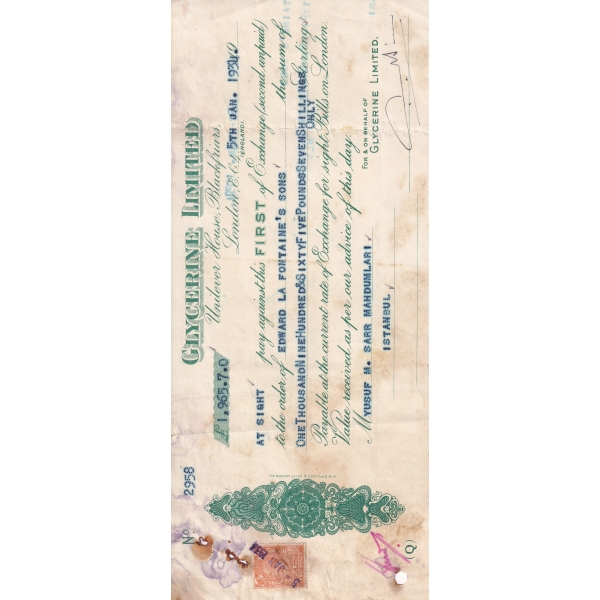 GLYCERINE LIMITED
Unilever House, Blackfriars,
London, E.C.4. 5TH JAN. 1934
(ENGLAND)
No. 2958
£1,965.7.0
AT SIGHT pay against this FIRST of Exchange (second unpaid)
to the order of EDWARD LA FONTAINE'S SONS the sum of
ONE THOUSAND NINE HUNDRED & SIXTY FIVE POUNDS SEVEN SHILLINGS Sterling
ONLY
Payable at the current rate of Exchange for sight Bills on London.
Value received, as per our advice of this day
M YUSUF M. SARR MAHDUMLARI
ISTANBUL
FOR & ON BEHALF OF
GLYCERINE LIMITED.
(Q)